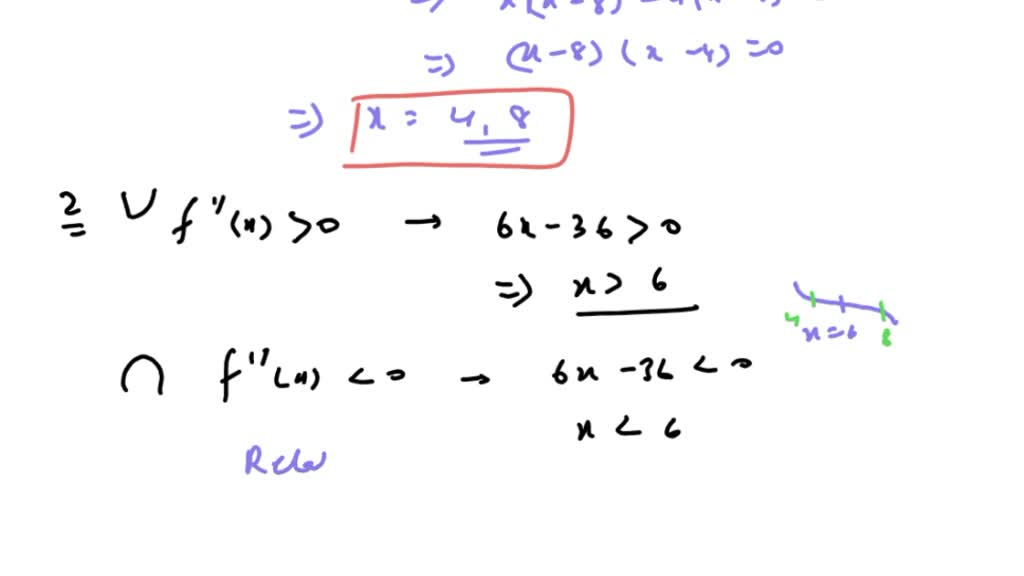 => (x-8) (x-4) =0
=> x = 4, 8
2 ∪ f''(x) >0 → 6x-36 > 0
=> x > 6
4 x=6 8
∩ f''(x) < 0 → 6x -36 < 0
x < 6
Rela